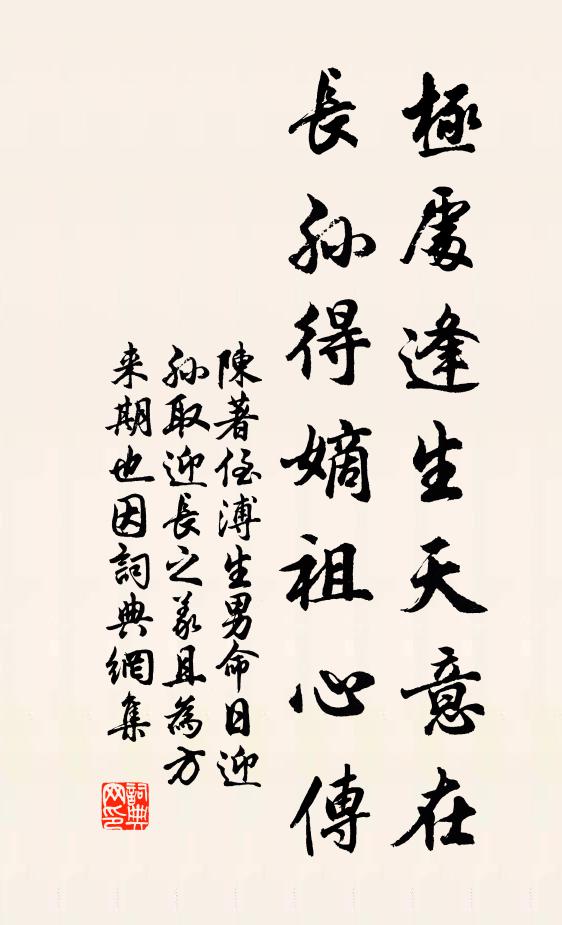 極處逢生天意在
長孫得嫡祖心傳
陳著侄溥生男命日迎
孫取迎長之義且為方
来期也因詞典網集
詞典
网印